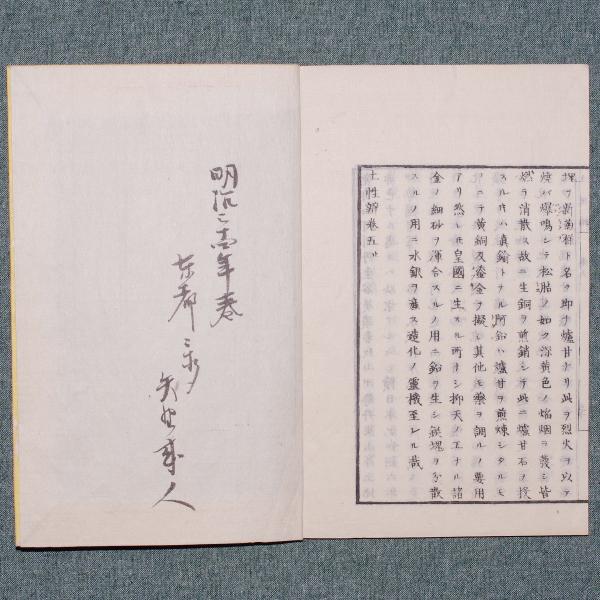 埋ヲ新菊軒ト名ク即チ爐甘ナリ此ヲ烈火ヲ以テ
焼バ爆鳴シテ松脂ノ如ク深黄色ノ焔烟ヲ発シ皆
燃ラ消散ス故ニ生銅ヲ煎銷シテ此ニ爐甘石ヲ投
スル𪜈ハ真鍮トナル所鉛ハ爐甘ヲ煎煉シタルモ
ニテ黄銅及鎏金ヲ擬シ其他モ薬ヲ調ルノ要用
アリ然レ𪜈皇國ニ生スル所少シ抑天ノ工ナル諸
金ノ細砂ヲ渾合スルノ用ニ鉛ヲ生シ鎔塊ヲ分散
スルノ用ニ水銀ヲ産ス造化ノ霊機至レル哉
土性辨巻五
明治二十四年春
東都
人